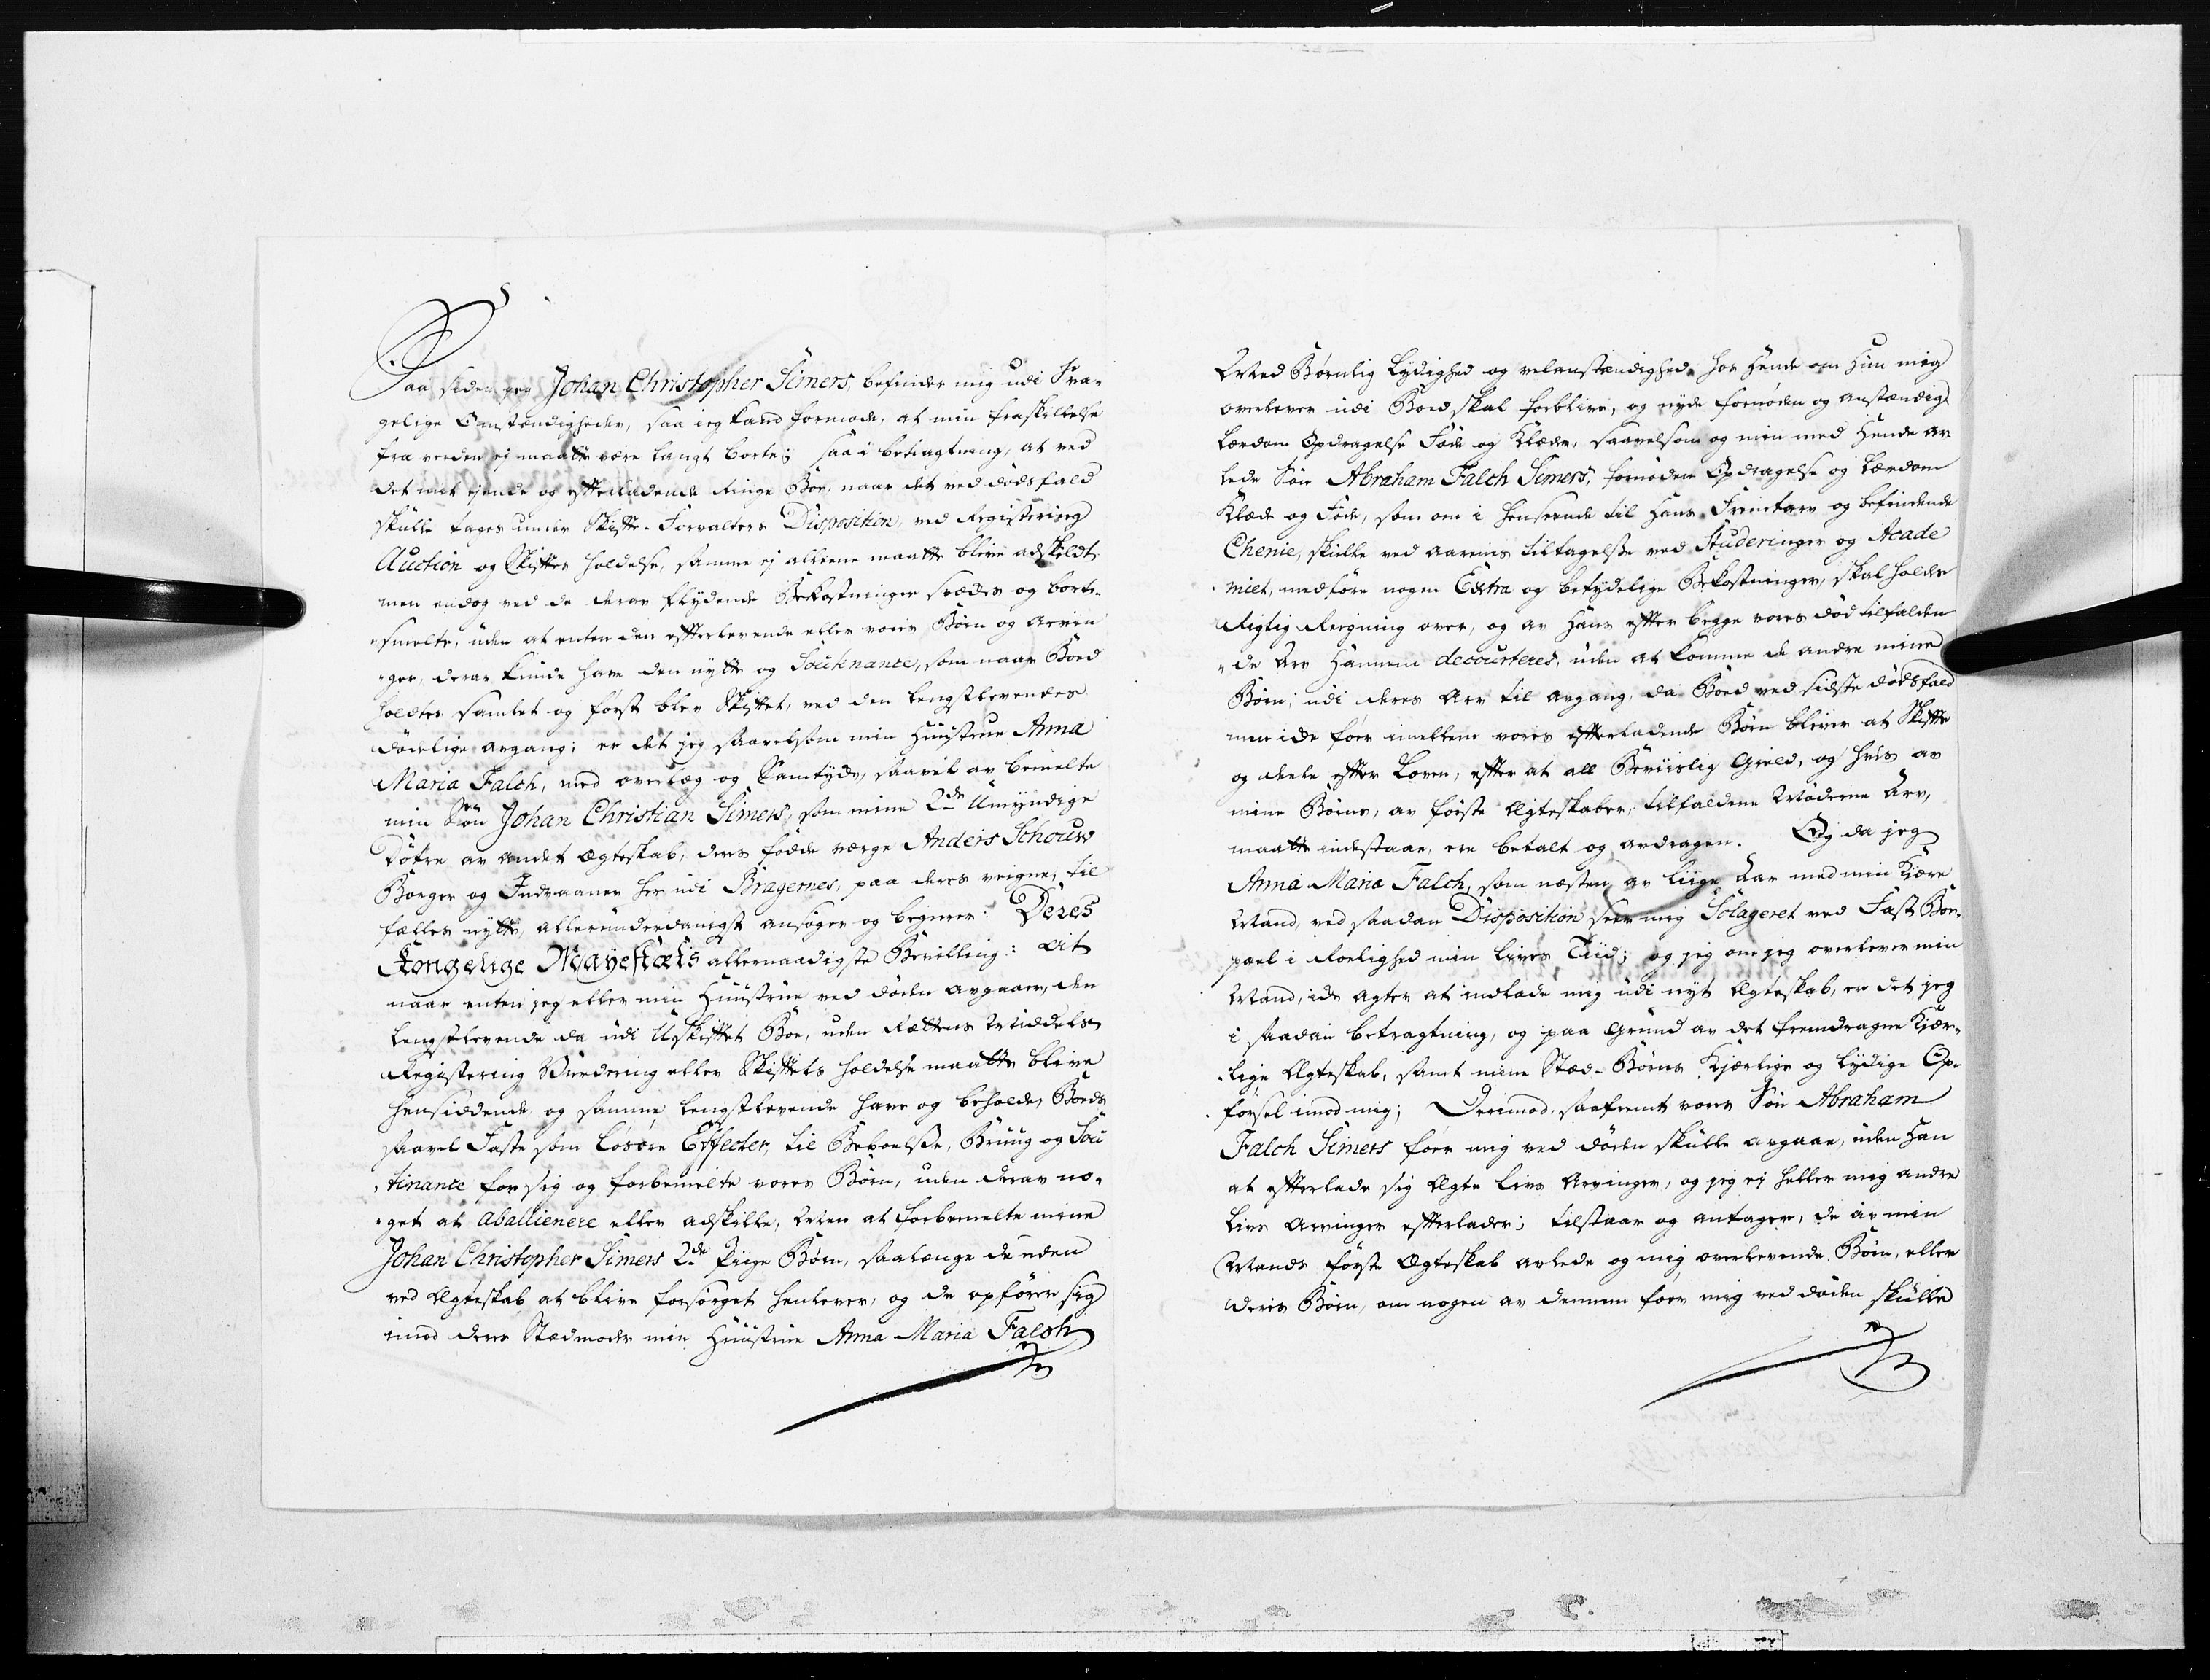 Saa siden jeg Johan Christopher Simers, befinder mig udi Sva-
gelige Omstændigheder, saa jeg kand formode, at min fraskillelse
fra verden ej maatte være langt borte; saa i betragtning, at ved
det mit ejende og efterladende Ringe Boe, naar det ved dødsfald
skulle tages under Skifte-Forvalters Disposition, ved Registering
Auction og Skiftes holdelse, samme ej alleene maatte blive adskildt
men endog ved de derav flydende Bekostninger spædes og borte-
smelte, uden at enten den efterlevende eller vores Børn og arvin-
ger, derav kunde have den nytte og Soutinance, som naar Boed
holdtes samlet og først blev Skiftet, ved den lengstlevendes
dødelige avgang; er det jeg saavelsom min Huustrue Anna
Maria Falch, med overlæg og Samtyde, saavel av bemelte
min Søn Johan Christian Simers, som mine 2de Umyndige
Døtre av andet Ægteskab, deres fødde værge Anders Schouw
Borger og Indvaaner her udi Bragernes, paa deres veigne, til
fælles nytte, allerunderdanigst ansøger og begierer: Deres
Kongelige Mayestæts allernaadigste Bevilling: at
naar enten jeg eller min Huustrue ved døden avgaaer, den
lengstlevende da udi Uskiftet Boe, uden Rættens Middels
Registering Vurdering eller Skiftets holdelse maatte blive
hensiddende og samme lengstlevende have og beholde, Boeds
saavel Faste som løsøre Effecter, til Beboelse, Bruug og Sou
tinance for sig og forbemelte vores Børn, uden derav no-
get at aballienere eller adskille, Men at forbemelte mine
Johan Christopher Simers 2de Piige Børn, saalænge de uden
ved Ægteskab at blive forsørget henlever, og de opfører sig
imod deres Stedmoder min Huustrue Anna Maria Falch
Med Børnlig Lydighed og velanstændighed, hos Hende om Hun mig
overlever udi Boed skal forblive, og nyde fornøden og anstændig
lærdom Opdragelse Føde og Klæder, saavelsom og min med Hende av
lede Søn Abraham Falch Simers, fornøden Opdragelse og lærdom
Klæde og Føde, som om i henseende til Hans Fremtarv og befindende
Chenie, skulle ved aarenes tiltagelse ved Studeringer og Acade
miet, medføre nogen Extra og betydelige Bekostninger, skal holdes
Rigtig Reigning over, og av Hans efter begge vores død tilfalden
de Arv Hannem decourteres, uden at komme de andre mine
Børn; udi deres Arv til avgang, da Boed ved sidste dødsfald
men ide før imellem vores efterladende Børn bliver at Skifte
og deele efter Loven, efter at all Beviislig Gield, og hvis av
mine Børns, av første Ægteskaber, tilfaldene Mødrene Arv,
maatte indestaae, ere betalt og avdragen. Og da jeg
Anna Maria Falch, som næsten av liige Aar med min Kjære
Mand, ved saadan Disposition seer mig Solageret ved Fast Boe-
pæl i Roelighed min lives Tiid; og jeg om jeg overlever min
Mand, ide agter at indlade mig udi nyt Ægteskab, er det jeg
i saadan betragtning, og paa Grund av det fremdragne Kjær-
lige Ægteskab, samt mine Stæd-Børns Kjærlige og lydige Op-
førsel imod mig; Derimod, saafremt vores Søn Abraham
Falch Simers før mig ved døden skulle avgaae, uden Han
at efterlade sig Ægte Livs Arvinger, og jeg ej heller mig andre
Livs Arvinger efterlader; tilstaar og antager, de av min
Mands første Ægteskab avlede og mig overlevende Børn, eller
deres Børn, om nogen av dennem foer mig ved døden skulle